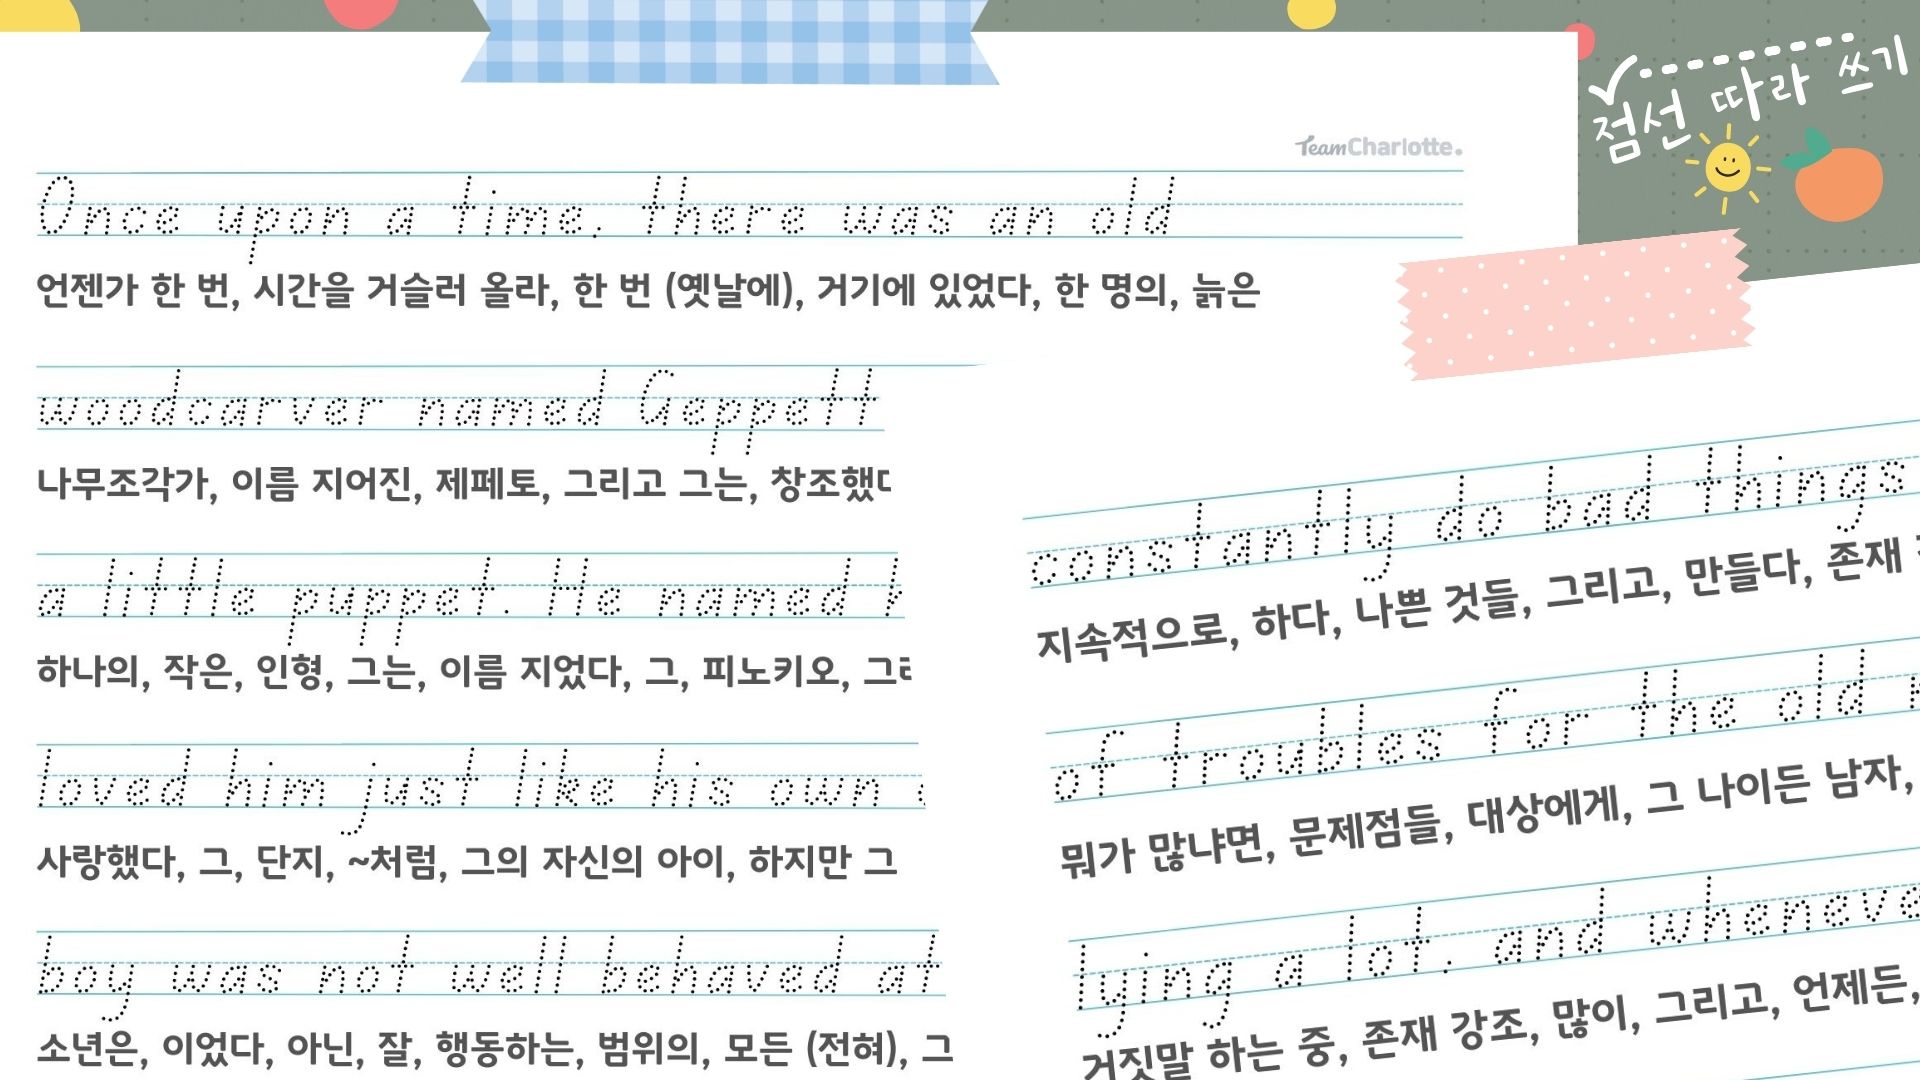 점선 따라 쓰기
TeamCharlotte.
Once upon a time, there was an old
언젠가 한 번, 시간을 거슬러 올라, 한 번 (옛날에), 거기에 있었다, 한 명의, 늙은
woodcarver named Gepett
나무조각가, 이름 지어진, 제페토, 그리고 그는,
a little puppet. He named
하나의, 작은, 인형, 그는, 이름 지었다, 그, 피노키오,
loved him just like his own
사랑했다, 그, 단지, ~처럼, 그의 자신의 아이, 하지만 그
boy was not well behaved at
소년은, 이었다, 아닌, 잘, 행동하는, 범위의, 모든 (전혀), 그
constantly do bad things
지속적으로, 하다, 나쁜 것들, 그리고, 만들다, 존재
of troubles for the old
뭐가 많냐면, 문제점들, 대상에게, 그 나이든 남자,
lying a lot. and wheneve
거짓말 하는 중, 존재 강조, 많이, 그리고, 언제든,